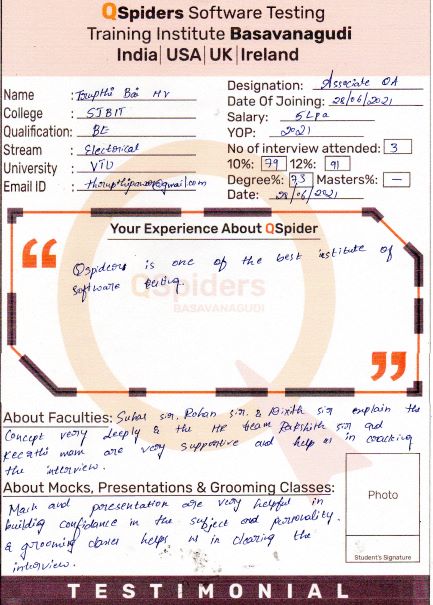 QSpiders Software Testing
Training Institute Basavanagudi
India| USA| UK| Ireland
Name : Trupthi Bai HV
College : SJBIT
Qualification: BE
Stream : Electorical
University : VTU
Email ID :
Designation: Associate QA
Date Of Joining: 28/06/2021
Salary: 5Lpa
YOP: 2021
No of interview attended: 3
10%: 79 12%: 91
Degree%: 73 Masters%: —
Date: 28/06/2021
Your Experience About QSpider
“
Qspiders is one of the best institute of
software testing.
QSpiders
BASAVANAGUDI
”
About Faculties: Suhas sir, Rohan sir & Dixith sir explain the
Concept very deeply & the HR team Rakshith sir and
mam are very supportive and help us in cracking
the interview.
About Mocks, Presentations & Grooming Classes:
Mock and presentation are very helpful in
building confidance in the subject and personality.
& grooming classes helps us in clearing the
interview.
Photo
Student's Signature
TESTIMONIAL